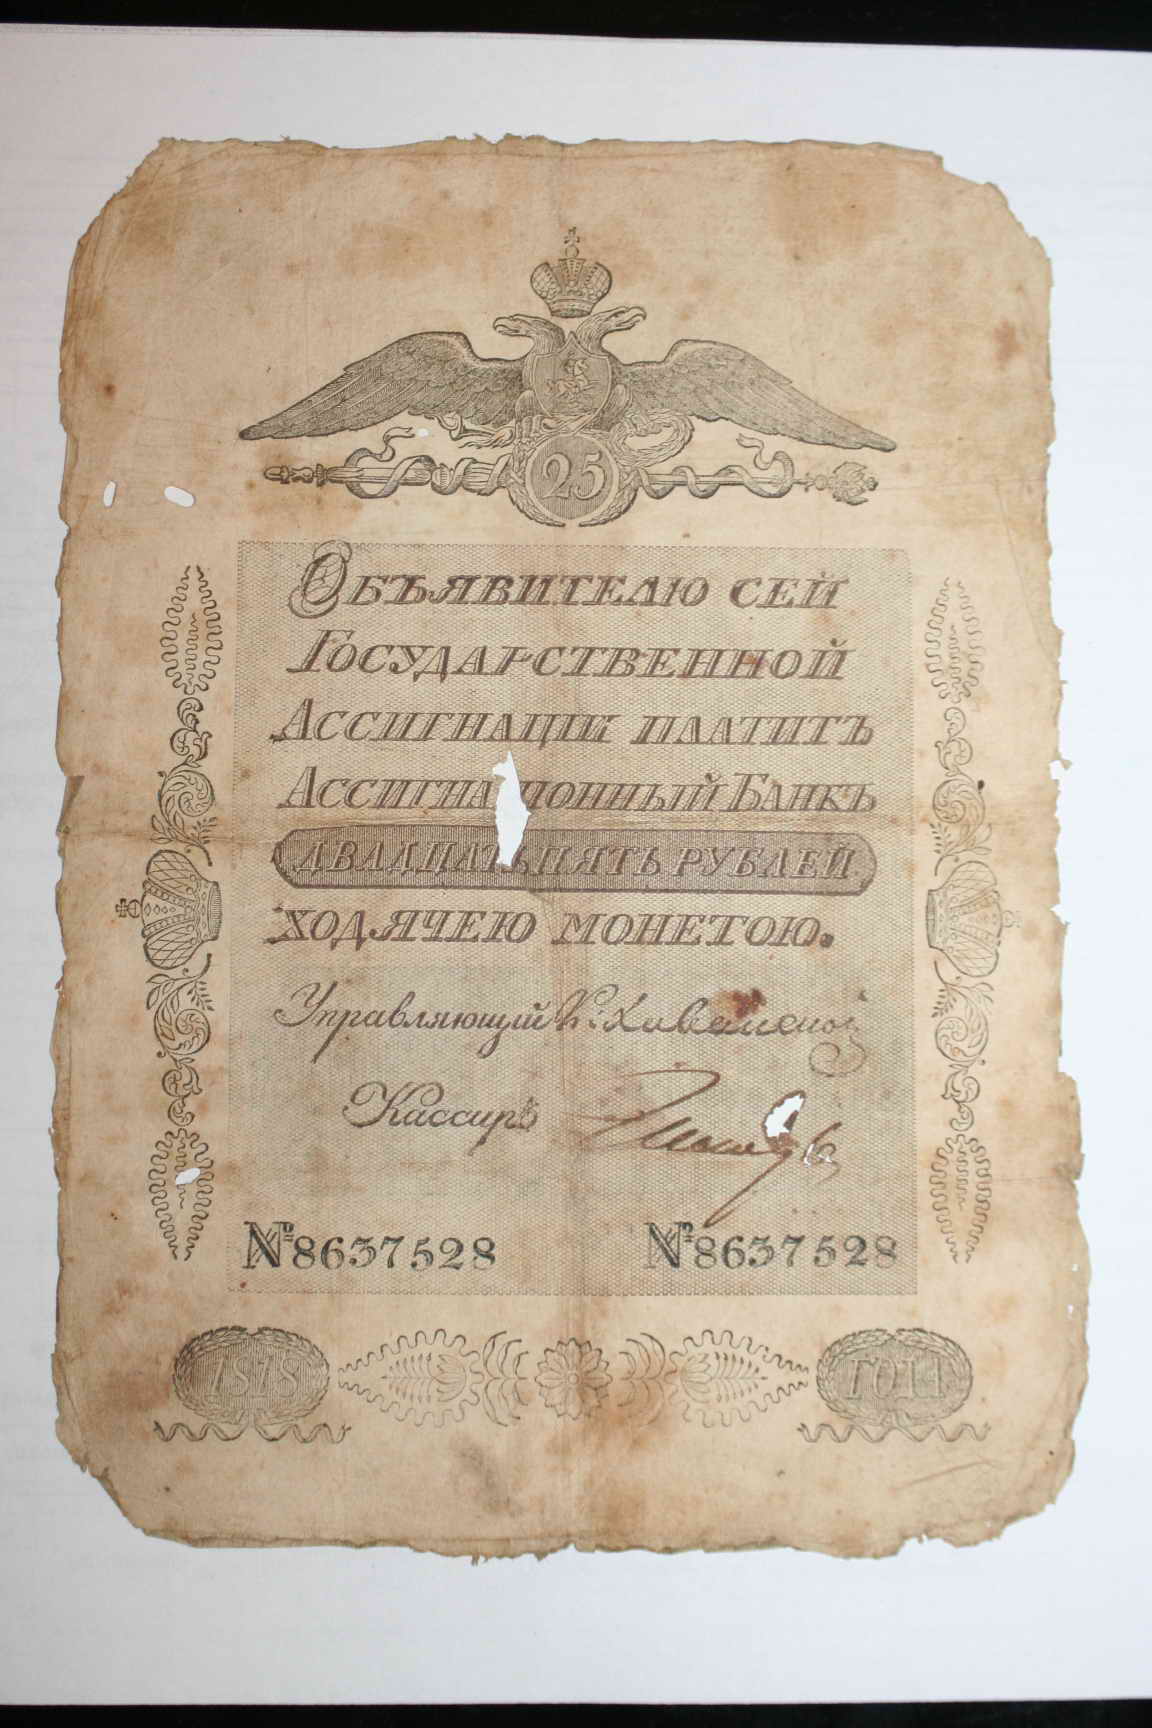 25
Объявителю сей
Государственной
Ассигнаціи платитъ
Ассигнаціонный Банкъ
двадцать пять рублей
ходячею монетою.
Управляющій
Кассиръ
№8637528 №8637528
1818 года